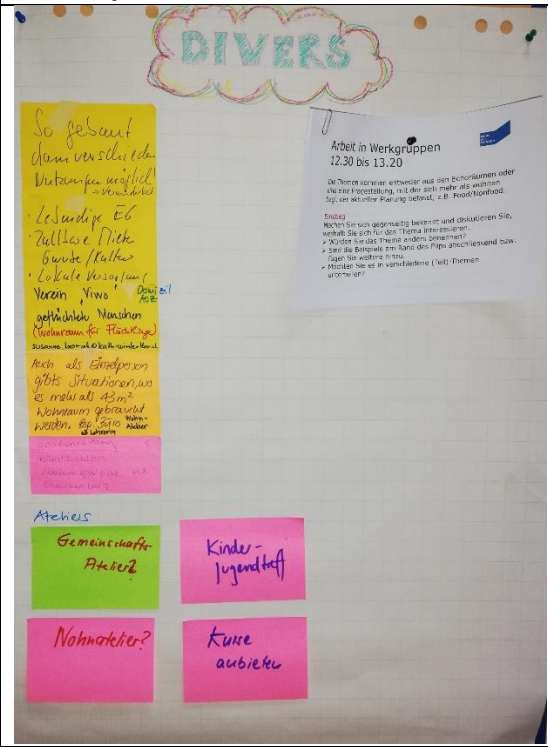 DIVERS
So gebaut
dann verschieden
Nutzungen möglich!
· Lebendige EG
· Zahlbare Miete
Gewerbe/Kultur
· Lokale Versorgung
Verein "Viwo"
geflüchtete Menschen
(Wohnraum für Flüchtlinge)
Auch als Einzelperson
gibts Situationen, wo
es mehr als 45m²
Wohnraum gebraucht
werden. Bsp. Büro
Arbeit in Werkgruppen
12.30 bis 13.20
Die Themen kommen entweder aus den Echoräumen oder
sind eine Fragestellung, mit der sich mehr als wohnen
bzgl. der aktueller Planung befasst, z.B. Food/Nonfood.
Einstieg
Machen Sie sich gegenseitig bekannt und diskutieren Sie,
weshalb Sie sich für das Thema interessieren.
> Würden Sie das Thema anders benennen?
> Sind die Beispiele am Rand des Flips abschliessend bzw.
fügen Sie weitere hinzu.
> Möchten Sie es in verschiedene (Teil)-Themen
unterteilen?
Ateliers
Gemeinschafts-
Atelier?
Kinder-
Jugendtreff
Wohnatelier?
Kurse
anbieten